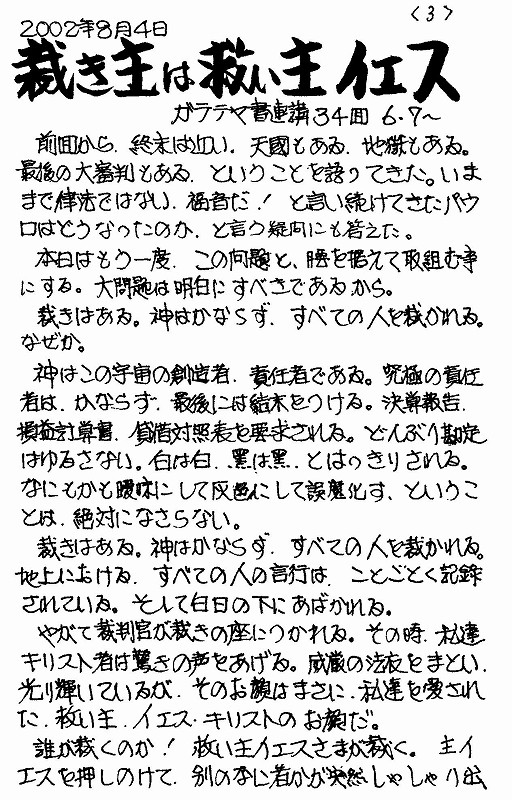 〈3〉
2002年8月4日
裁き主は救い主イエス
ガラテヤ書連講34回 6・7〜
前回から、終末は近い、天國もある、地獄もある。
最後の大審判もある、ということを語ってきた。いま
まで律法ではない、福音だ! と言い続けてきたパウ
ロはどうなったのか、と言う疑問にも答えた。
本日はもう一度、この問題と、腰を据えて取組む事
にする。大問題は明白にすべきであるから。
裁きはある。神はかならず、すべての人を裁かれる。
なぜか。
神はこの宇宙の創造者、責任者である。究極の責任
者は、かならず、最後には結末をつける。決算報告、
損益計算書、貸借対照表を要求される。どんぶり勘定
はゆるさない。白は白、黒は黒、とはっきりされる。
なにもかも曖昧にして灰色にして誤魔化す、というこ
とは、絶対になさらない。
裁きはある。神はかならず、すべての人を裁かれる。
地上における、すべての人の言行は、ことごとく記録
されている。そして白日の下にあばかれる。
やがて裁判官が裁きの座につかれる。その時、私達
キリスト者は驚きの声をあげる。威厳の法衣をまとい、
光り輝いているが、そのお顔はまさに、私達を愛され
た、救い主、イエス・キリストのお顔だ。
誰が裁くのか! 救い主イエスさまが裁く。主イ
エスを押しのけて、別のなに者かが突然しゃしゃり出